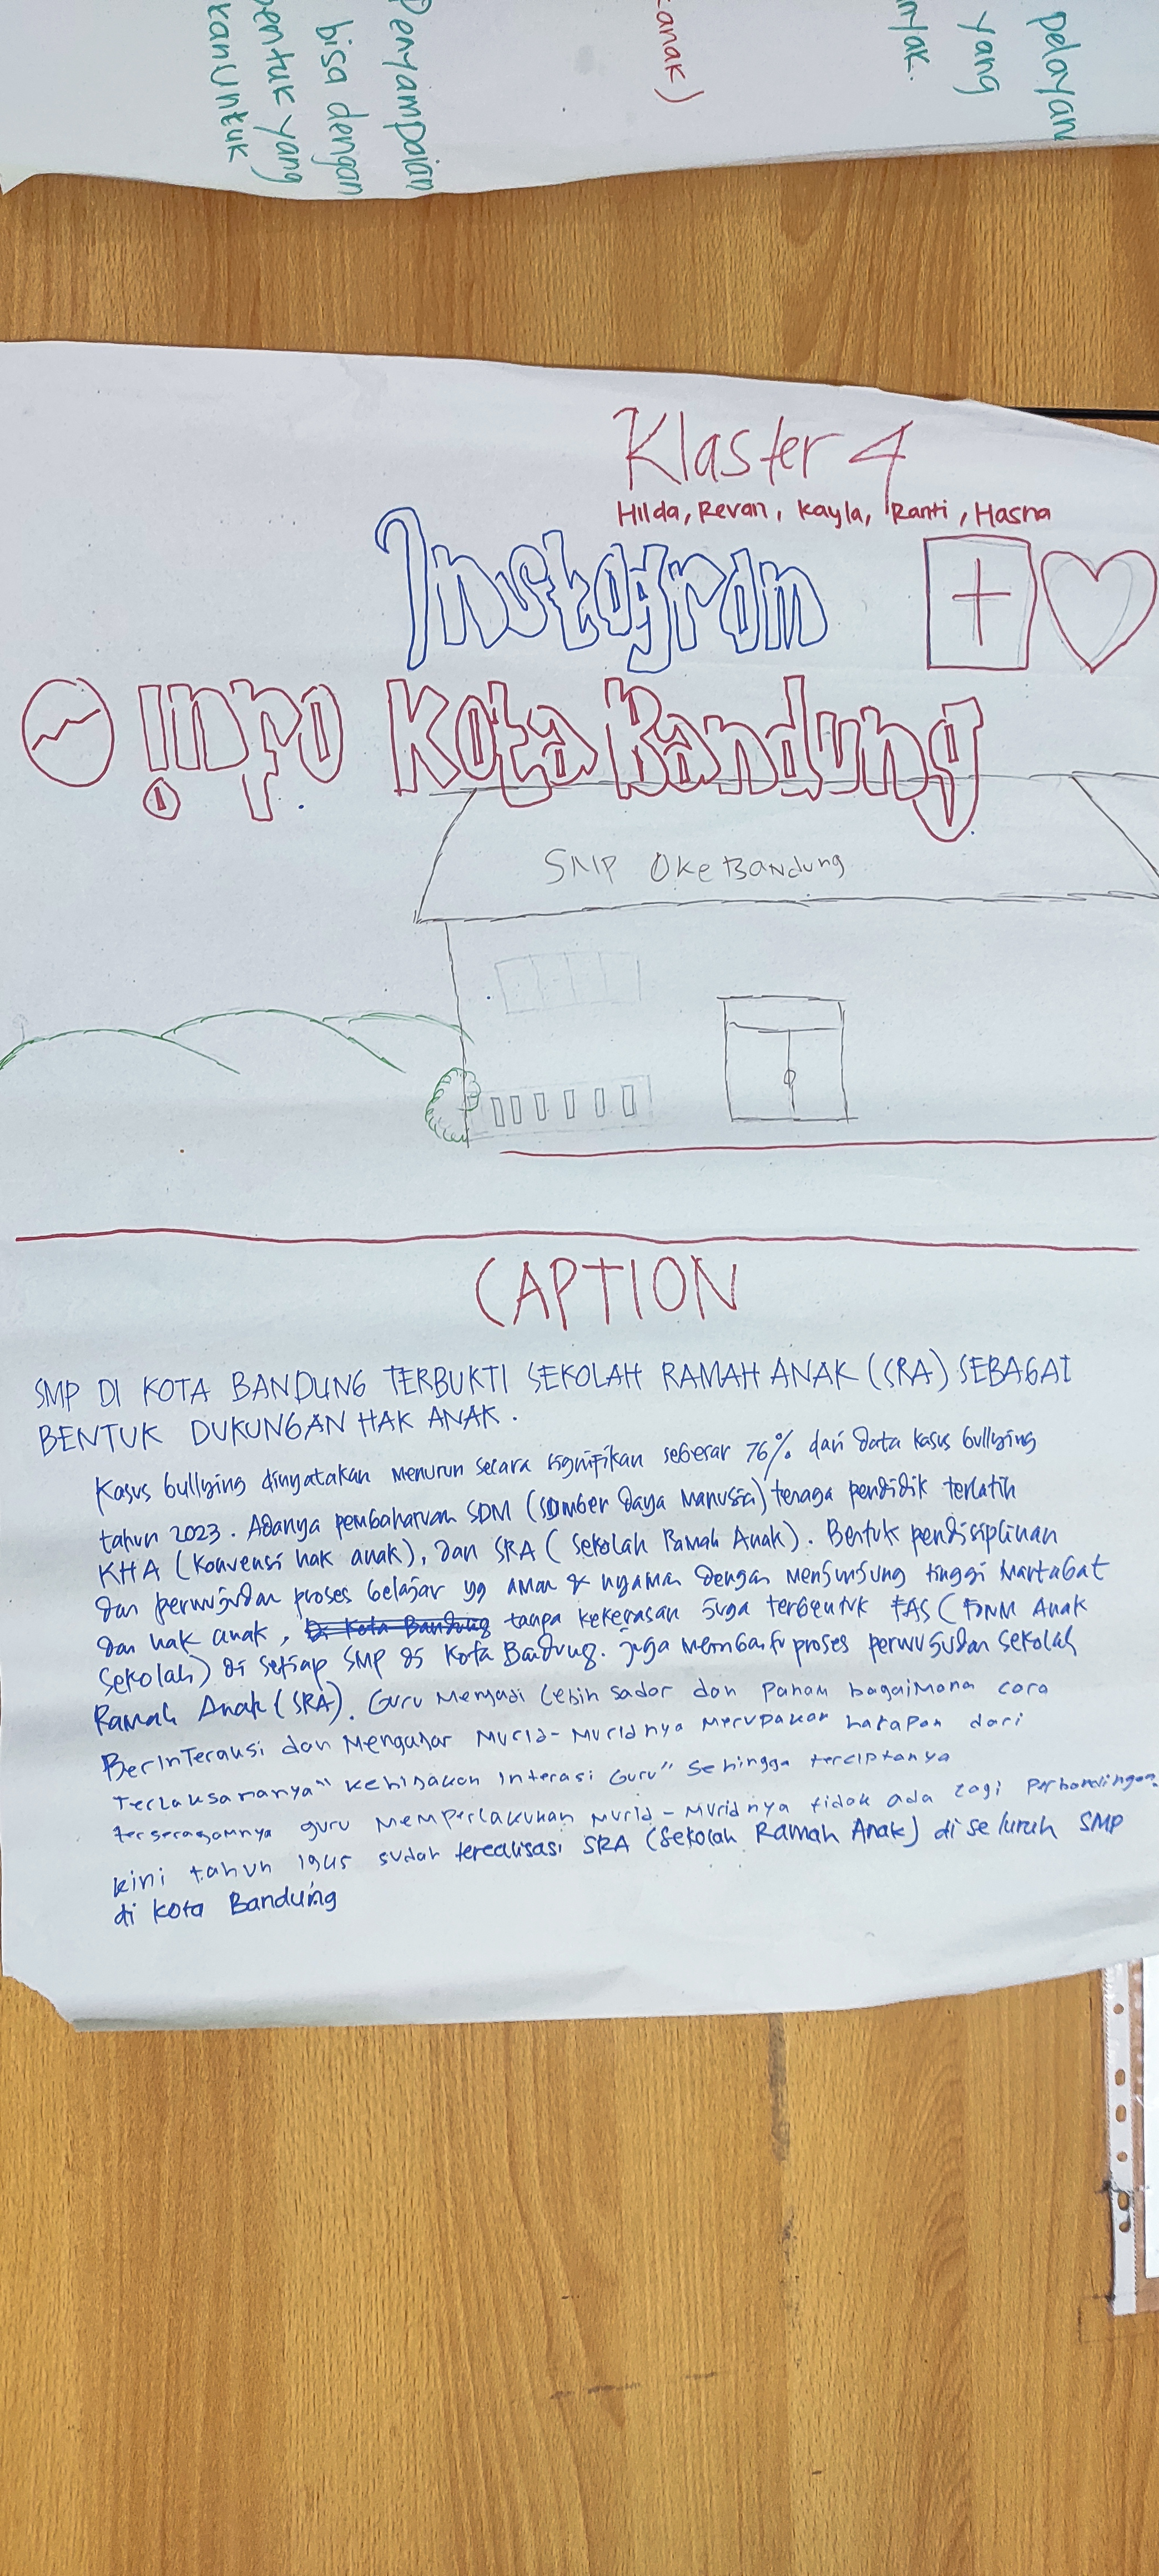 pelayan
yang
nyak.
anak)
Penyampaian
bisa dengan
bentuk yang
kan untuk
Klaster 4
Hilda, Revan, Kayla, Ranti, Hasna
Instagram
info Kota Bandung
SMP Oke Bandung
CAPTION
SMP DI KOTA BANDUNG TERBUKTI SEKOLAH RAMAH ANAK (SRA) SEBAGAI
BENTUK DUKUNGAN HAK ANAK.
Kasus bullying dinyatakan menurun secara signifikan sebesar 76% dari data kasus bullying
tahun 2023. Adanya pembaharuan SDM (sumber daya manusia) tenaga pendidik terlatih
KHA (Konvensi hak anak), dan SRA (Sekolah Ramah Anak). Bentuk pendisiplinan
dan perwujudan proses belajar yg aman & nyaman dengan menjunjung tinggi martabat
dan hak anak, Di Kota Bandung tanpa kekerasan juga terbentuk FAS (Forum Anak
Sekolah) di setiap SMP di Kota Bandung. juga membantu proses perwujudan sekolah
Ramah Anak (SRA). Guru Menjadi Lebih sadar dan Paham bagaimana cara
BerInteraksi dan Mengajar Murid-Muridnya Merupakan harapan dari
Terlaksananya "kebijakan Interasi Guru" Sehingga terciptanya
terseragamnya guru Memperlakukan Murid-Muridnya tidak ada lagi Perbandingan.
kini tahun 1945 sudah terealisasi SRA (Sekolah Ramah Anak) di seluruh SMP
di Kota Bandung